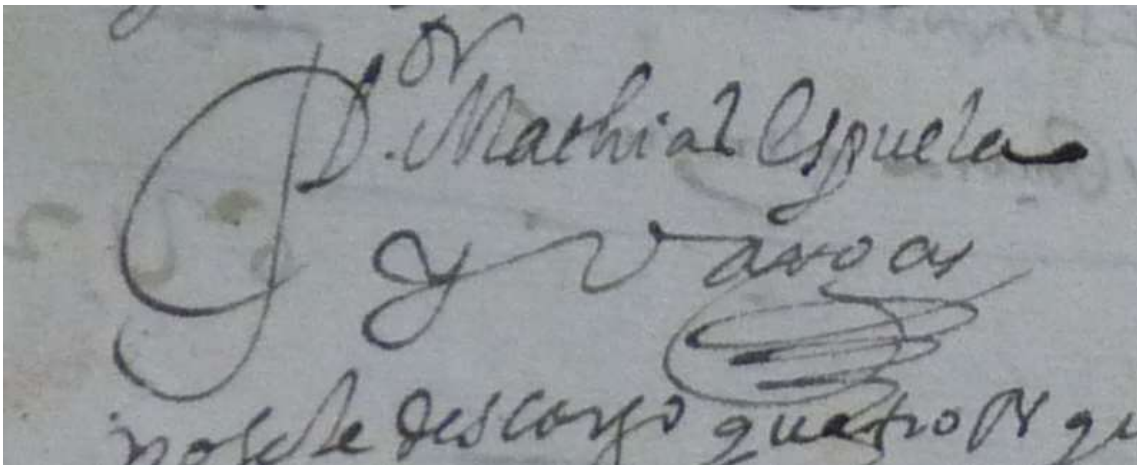 Dor. Mathias Espuela
y Vargas
descargo quatro ps